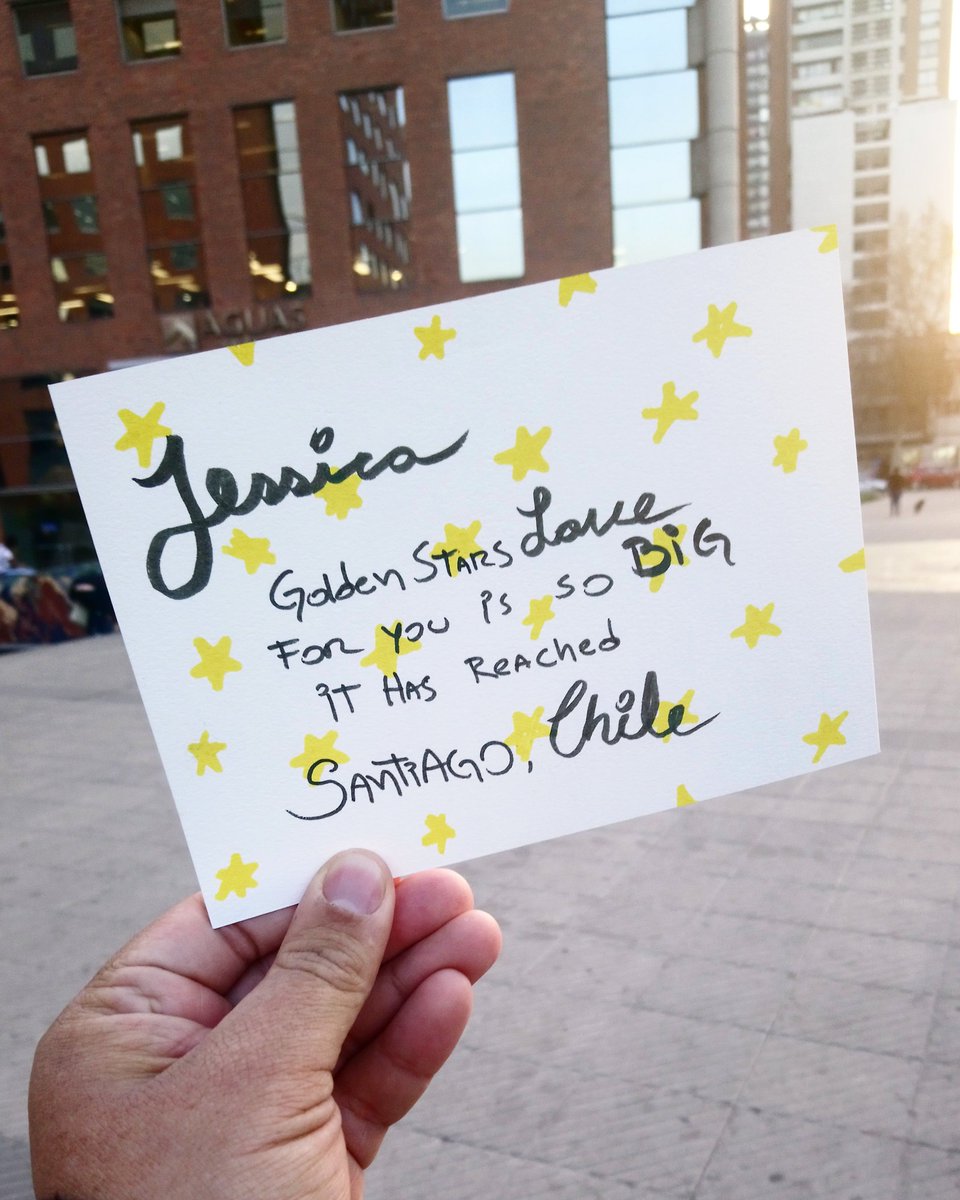 AGUAS
Jessica
Golden STARS Love
FOR you is so BiG
iT HAS REACHED
SANTiAGO, Chile